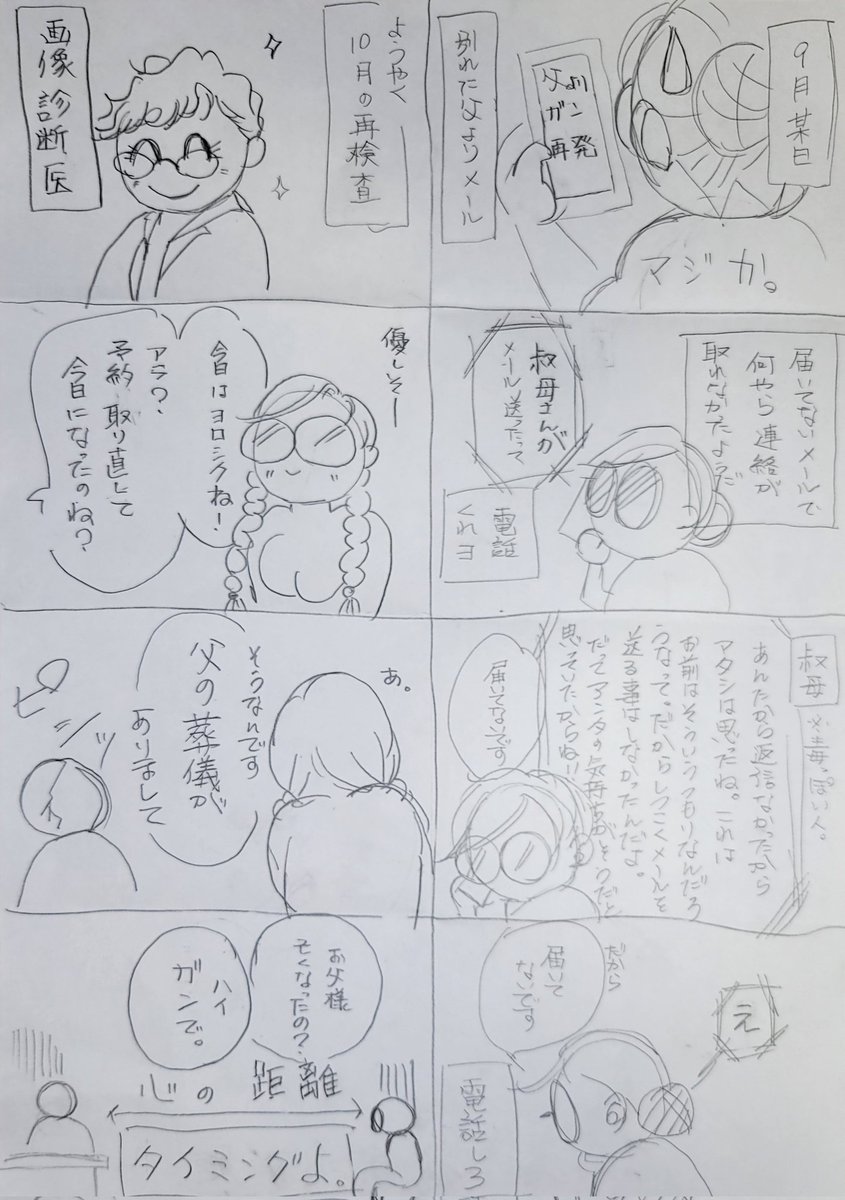 9月某日
父より
ガン
再発
別れた父よりメール
マジか。
届いてないメールで
何やら連絡が
取れなかったようだ
叔母さんが
メール送ったって
電話
くれヨ
叔母
毒っぽい人。
あんたから返信なかったから
アタシは思ったね。これは
お前はそういうつもりなんだろ
うなって。だからしつこくメールを
送る事はしなかったんだよ。
だってアンタの気持ちがそうだと
思っていたからね!!
届いてないです
え
だから
届いて
ないです
電話しろ
ようやく
10月の再検査
画像診断医
優しそー
今日はヨロシクね!
アラ?
予約取り直して
今日になったのね?
あ。
そうなんです
父の葬儀が
ありまして
ピシッ
お父様
亡くなったの?
ハイ
ガンで。
心の距離
タイミングよ。